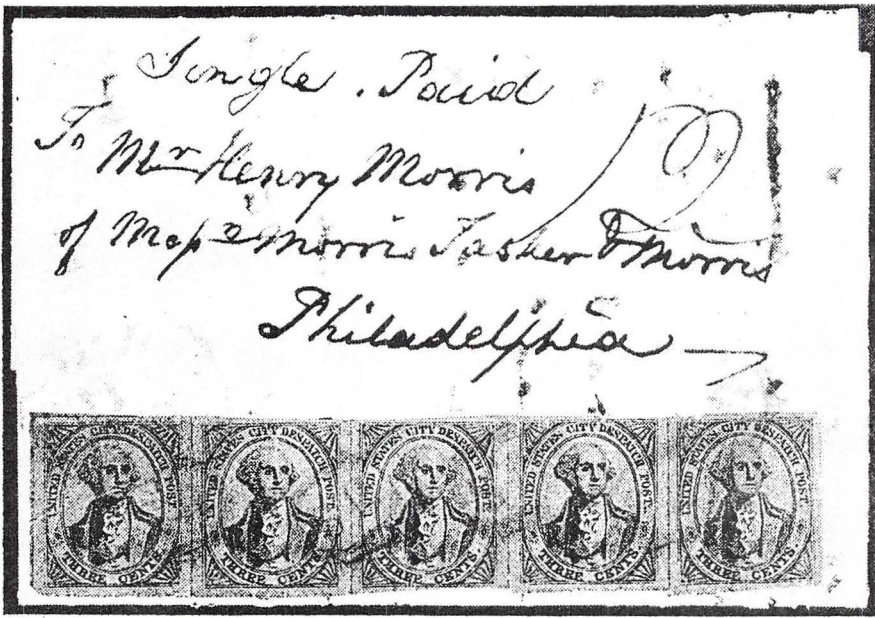 Single. Paid
To Mr Henry Morris
of Messrs Morris Tasker & Morris
Philadelphia
UNITED STATES CITY DESPATCH POST.
THREE CENTS.
UNITED STATES CITY DESPATCH POST.
THREE CENTS.
UNITED STATES CITY DESPATCH POST.
THREE CENTS.
UNITED STATES CITY DESPATCH POST.
THREE CENTS.
UNITED STATES CITY DESPATCH POST.
THREE CENTS.